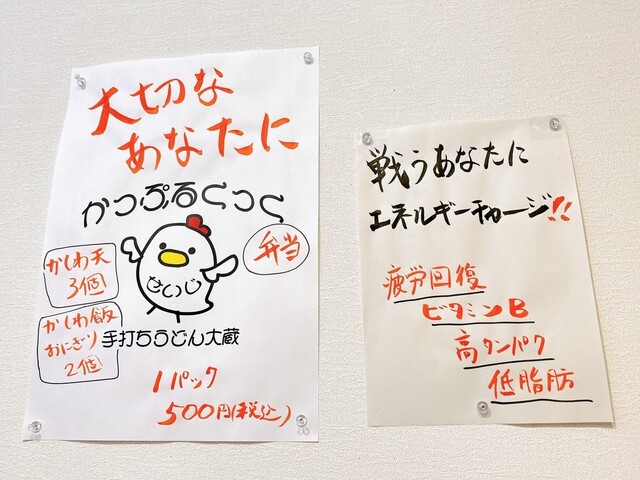 大切な
あなたに
かっぷるくっく
弁当
せいじ
かしわ天
3個
かしわ飯
おにぎり
2個
手打ちうどん大蔵
1パック
500円(税込)
戦うあなたに
エネルギーチャージ!!
疲労回復
ビタミンB
高タンパク
低脂肪